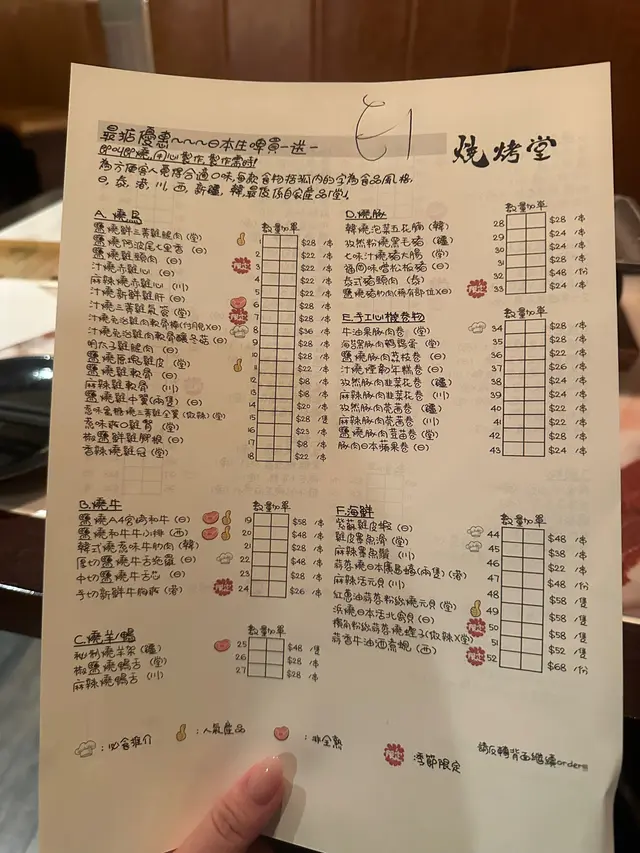 E1
最抵優惠~~~日本生啤買一送一
燒烤堂
即叫即燒,用心製作,製作需時!
為方便客人覓得合適口味,每款食物括弧內的字為食品風格,
日,泰,港,川,西,新疆,韓,最後乃自家產品「堂」
A. 燒鳥
數量 加單
鹽燒鮮三黃雞腿肉 (堂) 1 $28 /本
鹽燒阿波尾七里香 (日) 2 $22 /本
鹽燒雞頸肉 (日) 3 $22 /本
汁燒赤雞心 (日) 4 $22 /本
麻辣燒赤雞心 (川) 5 $22 /本
汁燒新鮮雞肝 (日) 6 $28 /本
汁燒三黃雞 (堂) 7 $28 /本
汁燒免治雞肉軟骨棒 (日) 8 $36 /本
汁燒免治雞肉軟骨釀冬菇 (日) 9 $28 /本
明太子雞腿肉 (日) 10 $28 /本
鹽燒原塊雞皮 (堂) 11 $22 /本
鹽燒雞軟骨 (日) 12 /本
麻辣雞軟骨 (川) 13 /本
鹽燒雞中翼(兩隻) (日) 14 $20 /本
蜜糖燒三黃雞全翼(微辣) (堂) 15 $28 /隻
惹味 (堂) 16 $23 /本
椒鹽鮮雞 (日) 17 /本
香辣燒雞 (堂) 18 $22 /本
B. 燒牛
數量 加單
鹽燒A4宮崎和牛 (日) 19 $58 /本
鹽燒和牛牛小排 (西) 20 $48 /本
韓式燒惹味牛肋肉 (韓) 21 $28 /本
厚切鹽燒牛舌 (日) 22 $48 /本
中切鹽燒牛舌芯 (日) 23 $28 /本
手切新鮮牛胸 (港) 24 $26 /本
C. 燒羊/鴨
數量 加單
秘制燒羊架 (疆) 25 $48 /隻
椒鹽燒鴨舌 (堂) 26 $28 /本
麻辣燒鴨舌 (川) 27 $28 /本
D. 燒豚
數量 加單
韓燒泡菜五花腩 (韓) 28 $28 /本
孜然粉燒黑毛豬 (疆) 29 $24 /本
七味汁燒豬大腸 (堂) 30 $24 /本
福岡味噌松板豬 (日) 31 $28 /本
泰式豬頸肉 (泰) 32 $48 /份
鹽燒豬肋肉(稀有部位) (日) 33 $24 /本
E. 手工心機卷物
數量 加單
牛油果豚肉卷 (堂) 34 $28 /本
豚肉鵪鶉蛋 (堂) 35 $28 /本
鹽燒豚肉荔枝卷 (日) 36 $22 /本
汁燒煙肉年糕卷 (日) 37 $26 /本
孜然豚肉韭菜花卷 (疆) 38 $24 /本
麻辣豚肉韭菜花卷 (川) 39 $24 /本
孜然豚肉芫茜卷 (疆) 40 $22 /本
麻辣豚肉芫茜卷 (川) 41 $22 /本
鹽燒豚肉豆苗卷 (堂) 42 $22 /本
豚肉日本蘋果卷 (日) 43 $24 /本
F. 海鮮
數量 加單
紫蘇雞皮蝦 (日) 44 $48 /本
雞皮鱔魚滑 (堂) 45 $38 /本
麻辣 (川) 46 $22 /本
蒜蓉燒日本廣島蠔(兩隻) (港) 47 $48 /份
麻辣活元貝 (川) 48 $58 /隻
紅蔥油蒜蓉粉絲燒元貝 (堂) 49 $58 /隻
浜燒日本活北寄貝 (日) 50 $58 /隻
粉絲蒜蓉燒蟶子(微辣) (堂) 51 $52 /隻
蒜香牛油 (西) 52 $68 /份
: 必食推介
: 人氣產品
: 非全熟
季節限定
請反轉背面繼續order!!!